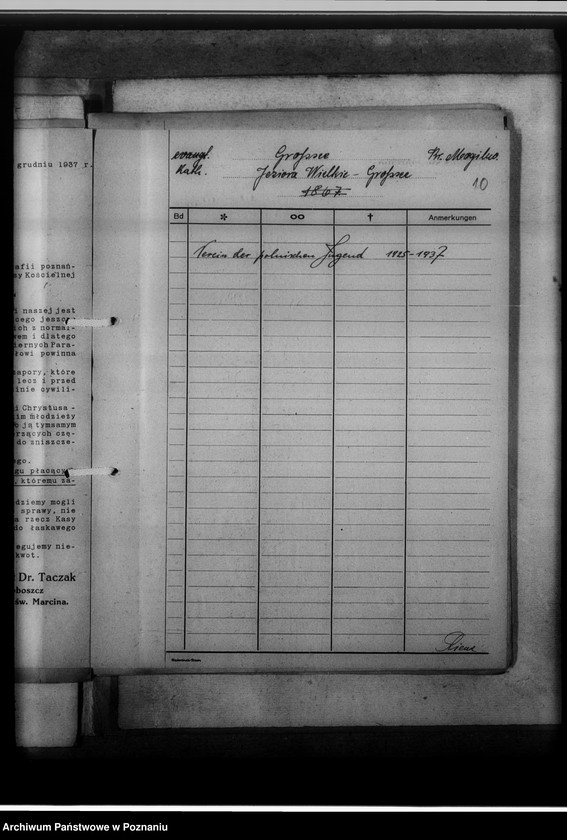 grudniu 1937 r.
afii poznań-
sy Kościelnej
i naszej jest
cego jeszcze
ich z normal-
wem i dlatego
iernych Para-
łowi powinna
zapory, które
lecz i przed
inie cywili-
i Chrystusa -
im młodzieży
ją tymsamym
rzących czę-
do zniszcze-
ego.
gu płacącym
, któremu za-
dziemy mogli
sprawy, nie
a rzecz Kasy
do łaskawego
egujemy nie-
kwot.
Dr. Taczak
boszcz
św. Marcina.
evangl. Grofsee Kr. Mogilno
Kath. Jeziora Wielkie - Grofsee
1867 10
Bd * ∞ † Anmerkungen
Verein der polnischen Jugend 1925-1937
Archiwum Państwowe w Poznaniu